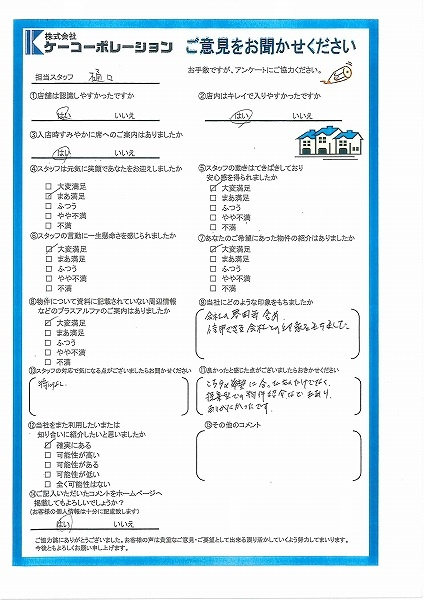 株式会社
ケーコーポレーション
ご意見をお聞かせください
お手数ですが、アンケートにご協力ください。
担当スタッフ 樋口
①店舗は認識しやすかったですか
はい いいえ
②店内はキレイで入りやすかったですか
はい いいえ
③入店時すみやかに席へのご案内はありましたか
はい いいえ
④スタッフは元気に笑顔であなたをお迎えしましたか
□ 大変満足
☑ まあ満足
□ ふつう
□ やや不満
□ 不満
⑤スタッフの動きはてきぱきしており
安心感を得られましたか
☑ 大変満足
□ まあ満足
□ ふつう
□ やや不満
□ 不満
⑥スタッフの言動に一生懸命さを感じられましたか
☑ 大変満足
□ まあ満足
□ ふつう
□ やや不満
□ 不満
⑦あなたのご希望にあった物件の紹介はありましたか
☑ 大変満足
□ まあ満足
□ ふつう
□ やや不満
□ 不満
⑧物件について資料に記載されていない周辺情報
などのプラスアルファのご案内はありましたか
☑ 大変満足
□ まあ満足
□ ふつう
□ やや不満
□ 不満
⑨当社にどのような印象をもちましたか
会社の雰囲気
信用できる会社との印象をもちました
⑩スタッフの対応で気になる点がございましたらお聞かせください
特になし
⑪良かったと感じた点がございましたらおきかせください
こちらの希望に合
物件紹介など
ありがたかったです。
⑫当社をまた利用したいまたは
知り合いに紹介したいと思いましたか
☑ 確実にある
□ 可能性が高い
□ 可能性がある
□ 可能性が低い
□ 全く可能性はない
⑬その他のコメント
⑭ご記入いただいたコメントをホームページへ
掲載してもよろしいでしょうか？
(お客様の個人情報は十分に配慮致します)
はい いいえ
ご協力誠にありがとうございました。お客様の声は貴重なご意見・ご要望として出来る限り活かしていくよう努力してまいります。
今後ともよろしくお願い申し上げます。